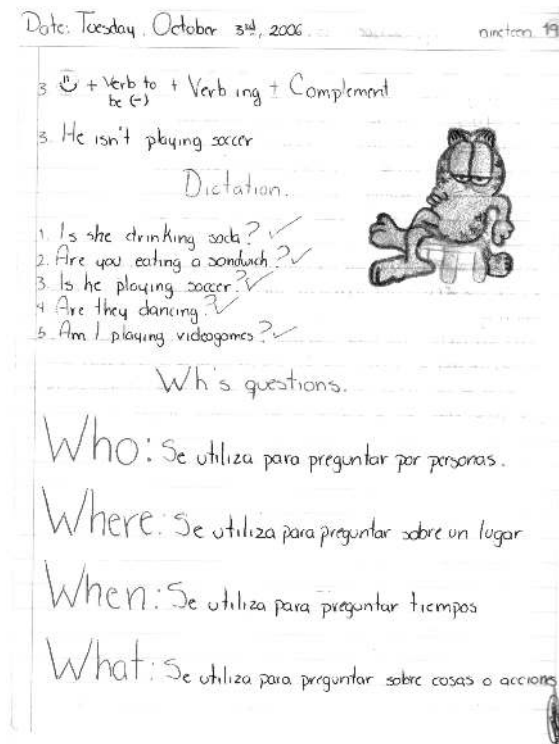 Date: Tuesday, October 3rd, 2006.
nineteen 19
3 + Verb to be (-) + Verb ing + Complement
3. He isn't playing soccer
Dictation.
1. Is she drinking soda?
2. Are you eating a sandwich?
3. Is he playing soccer?
4 Are they dancing?
5 Am I playing videogames?
Wh's questions.
Who: Se utiliza para preguntar por personas.
Where: Se utiliza para preguntar sobre un lugar
When: Se utiliza para preguntar tiempos
What: Se utiliza para preguntar sobre cosas o acciones